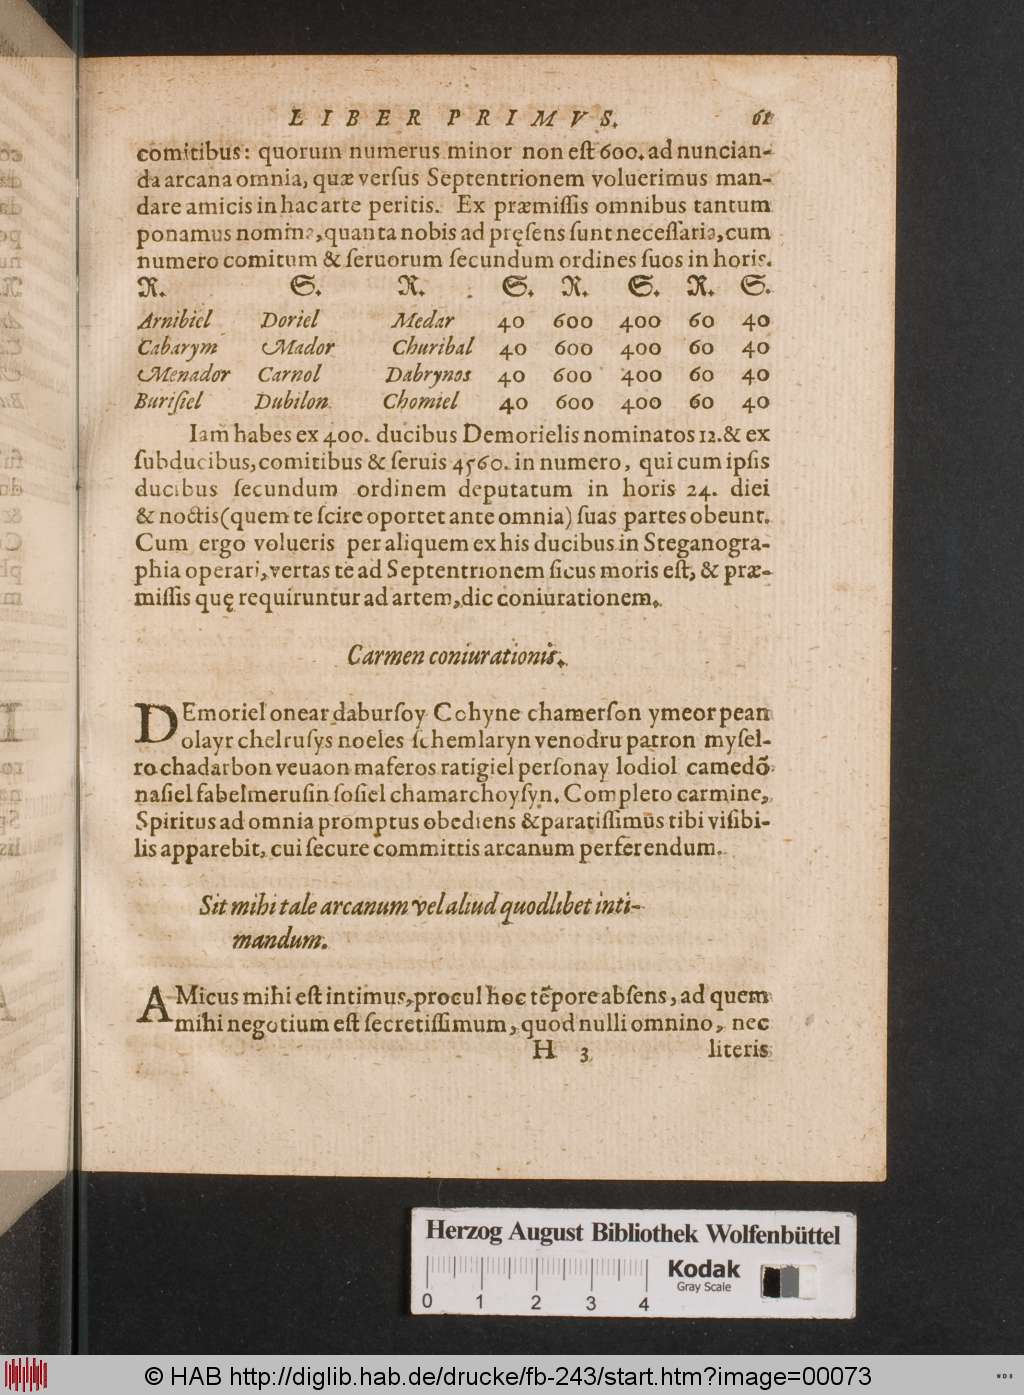 LIBER PRIMVS. 61
comitibus: quorum numerus minor non eſt 600. ad nuncian-
da arcana omnia, quæ verſus Septentrionem voluerimus man-
dare amicis in hac arte peritis. Ex præmiſſis omnibus tantum
ponamus nomina, quanta nobis ad pręſens ſunt neceſſaria, cum
numero comitum & ſeruorum ſecundum ordines ſuos in horis.
R. S. R. S. R. S. R. S.
Arnibiel Doriel Medar 40 600 400 60 40
Cabarym Mador Churibal 40 600 400 60 40
Menador Carnol Dabrynos 40 600 400 60 40
Buriſiel Dubilon Chomiel 40 600 400 60 40
Iam habes ex 400. ducibus Demorielis nominatos 12. & ex
ſubducibus, comitibus & ſeruis 4560. in numero, qui cum ipſis
ducibus ſecundum ordinem deputatum in horis 24. diei
& noctis (quem te ſcire oportet ante omnia) ſuas partes obeunt.
Cum ergo volueris per aliquem ex his ducibus in Steganogra-
phia operari, vertas te ad Septentrionem ſicus moris eſt, & præ-
miſſis quę requiruntur ad artem, dic coniurationem.
Carmen coniurationis.
DEmoriel onear daburſoy Cohyne chamerſon ymeor pean
olayr chelruſys noeles ſchemlaryn venodru patron myſel-
ro chadarbon veuaon maferos ratigiel perſonay lodiol camedõ
naſiel fabelmeruſin ſoſiel chamarchoyſyn. Completo carmine,
Spiritus ad omnia promptus obediens & paratiſſimus tibi viſibi-
lis apparebit, cui ſecure committis arcanum perferendum.
Sit mihi tale arcanum vel aliud quodlibet inti-
mandum.
AMicus mihi eſt intimus, procul hoc tẽpore abſens, ad quem
mihi negotium eſt ſecretiſſimum, quod nulli omnino, nec
H 3 literis
Herzog August Bibliothek Wolfenbüttel
Kodak
Gray Scale
0 1 2 3 4
© HAB http://diglib.hab.de/drucke/fb-243/start.htm?image=00073